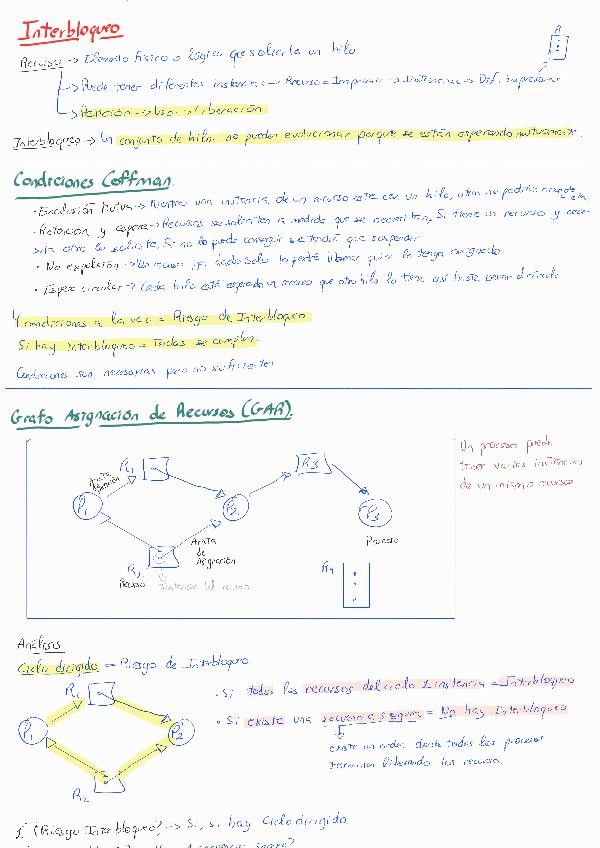 Interbloqueo
Recurso -> Elemento físico o lógico que solicita un hilo
R
-> Puede tener diferentes instancias -> Recurso = Impresora -> instancias -> Dif. impresoras
-> Petición -> Uso -> Liberación
Interbloqueo -> Un conjunto de hilos no pueden evolucionar porque se están esperando mutuamente.
Condiciones Coffman.
· Exclusión mutua -> Mientras una instancia de un recurso este con un hilo, otros no podrán acceder a ella
· Retención y espera -> Recursos se solicitan a medida que se necesitan, Si tiene un recurso y nece-
sita otro lo solicita, Si no lo puede conseguir se tendrá que suspender
· No expulsión -> Un recurso asignado solo lo podrá liberar quien lo tenga asignado
· Espera circular -> Cada hilo está esperando un recurso que otro hilo lo tiene así hasta cerrar el círculo
4 condiciones a la vez = Riesgo de Interbloqueo
Si hay Interbloqueo = Todas se cumplen.
Condiciones son necesarias pero no suficientes
Grafo Asignación de Recursos (GAR).
Un proceso puede
tener varias instancias
de un mismo recursos
R1
R3
Arista
P1
P2
P3
Arista
de
Asignación
Proceso
R2
Recurso
del recurso
R4
Análisis
Ciclo dirigido = Riesgo de Interbloqueo
R1
P1
P2
R2
· Si todos los recursos del ciclo 1 instancia = Interbloqueo
· Si existe una secuencia segura = No hay Interbloqueo
existe un orden donde todos los procesos
terminan liberando los recursos
1º ¿Riesgo Interbloqueo? -> Si, si hay Ciclo dirigido